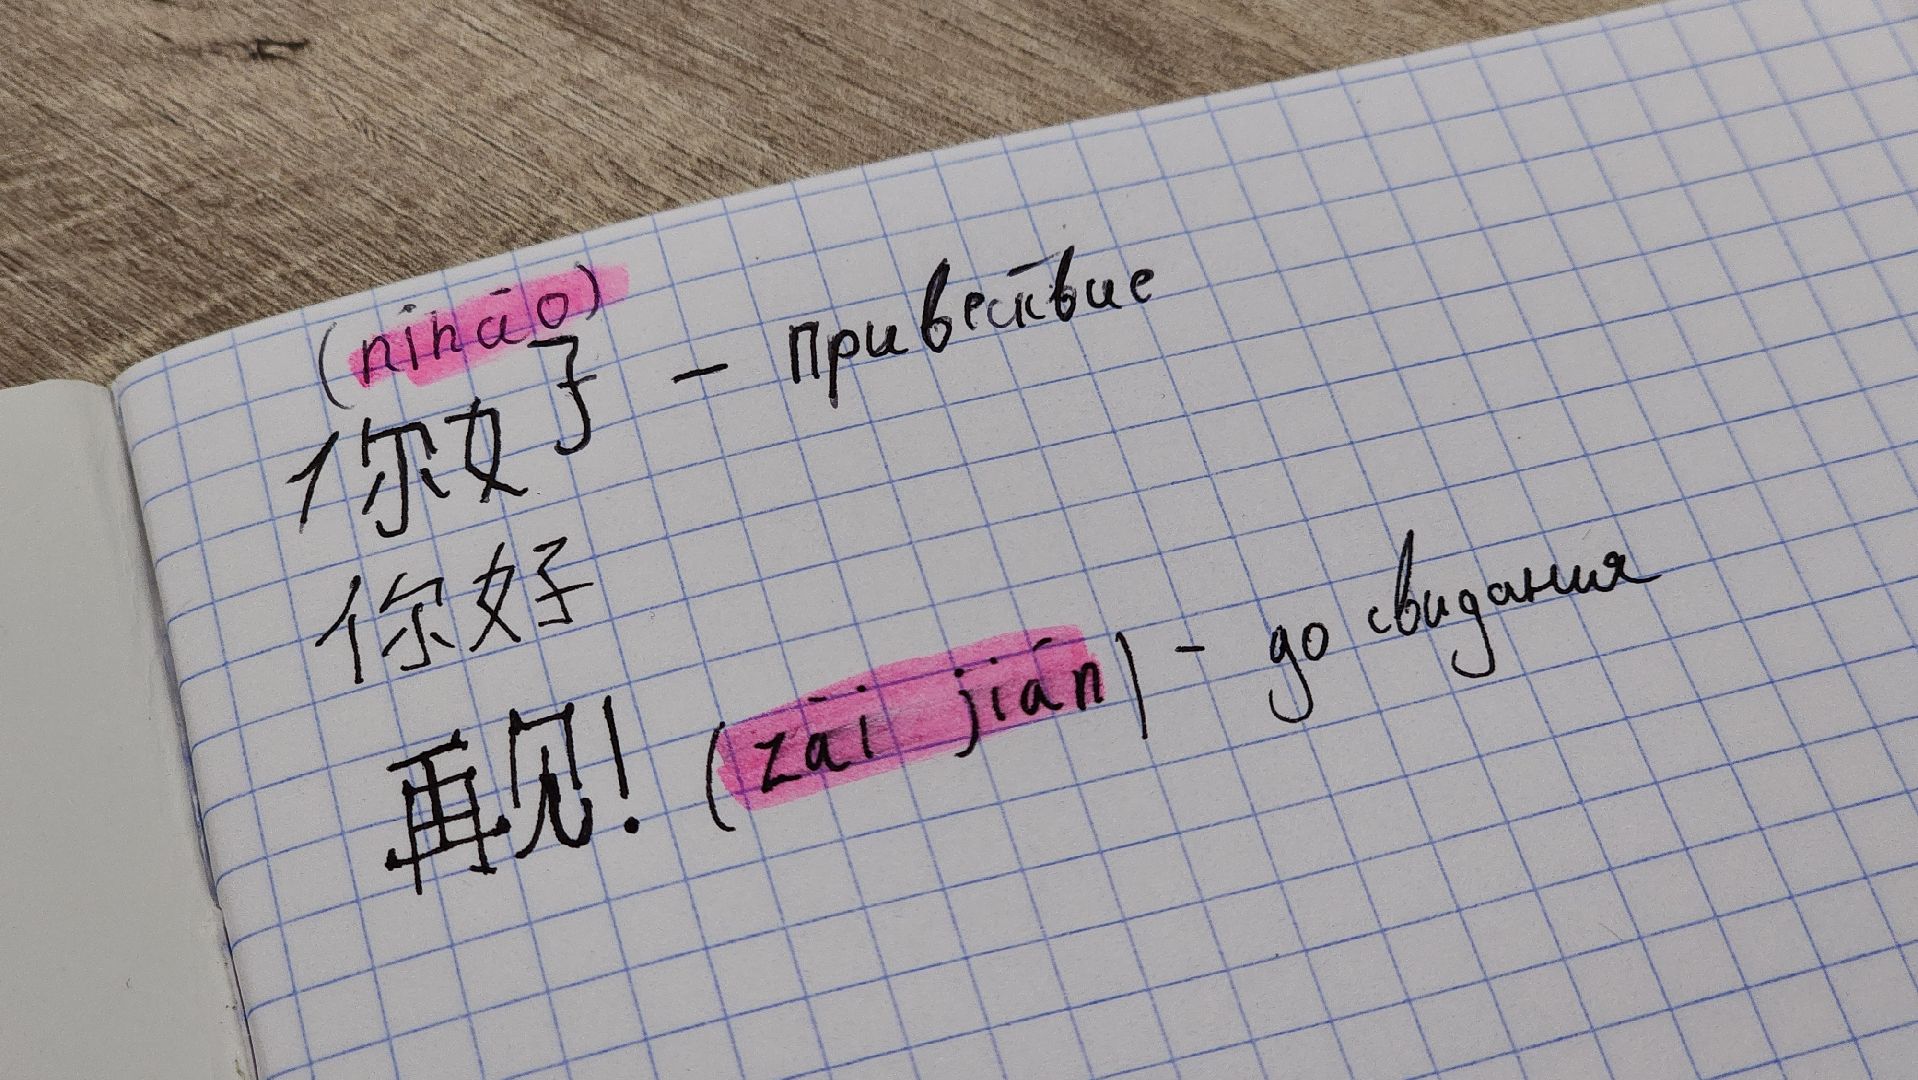 (nihāo)
你好 - приветствие
你好
再见! (zài jián) - до свидания